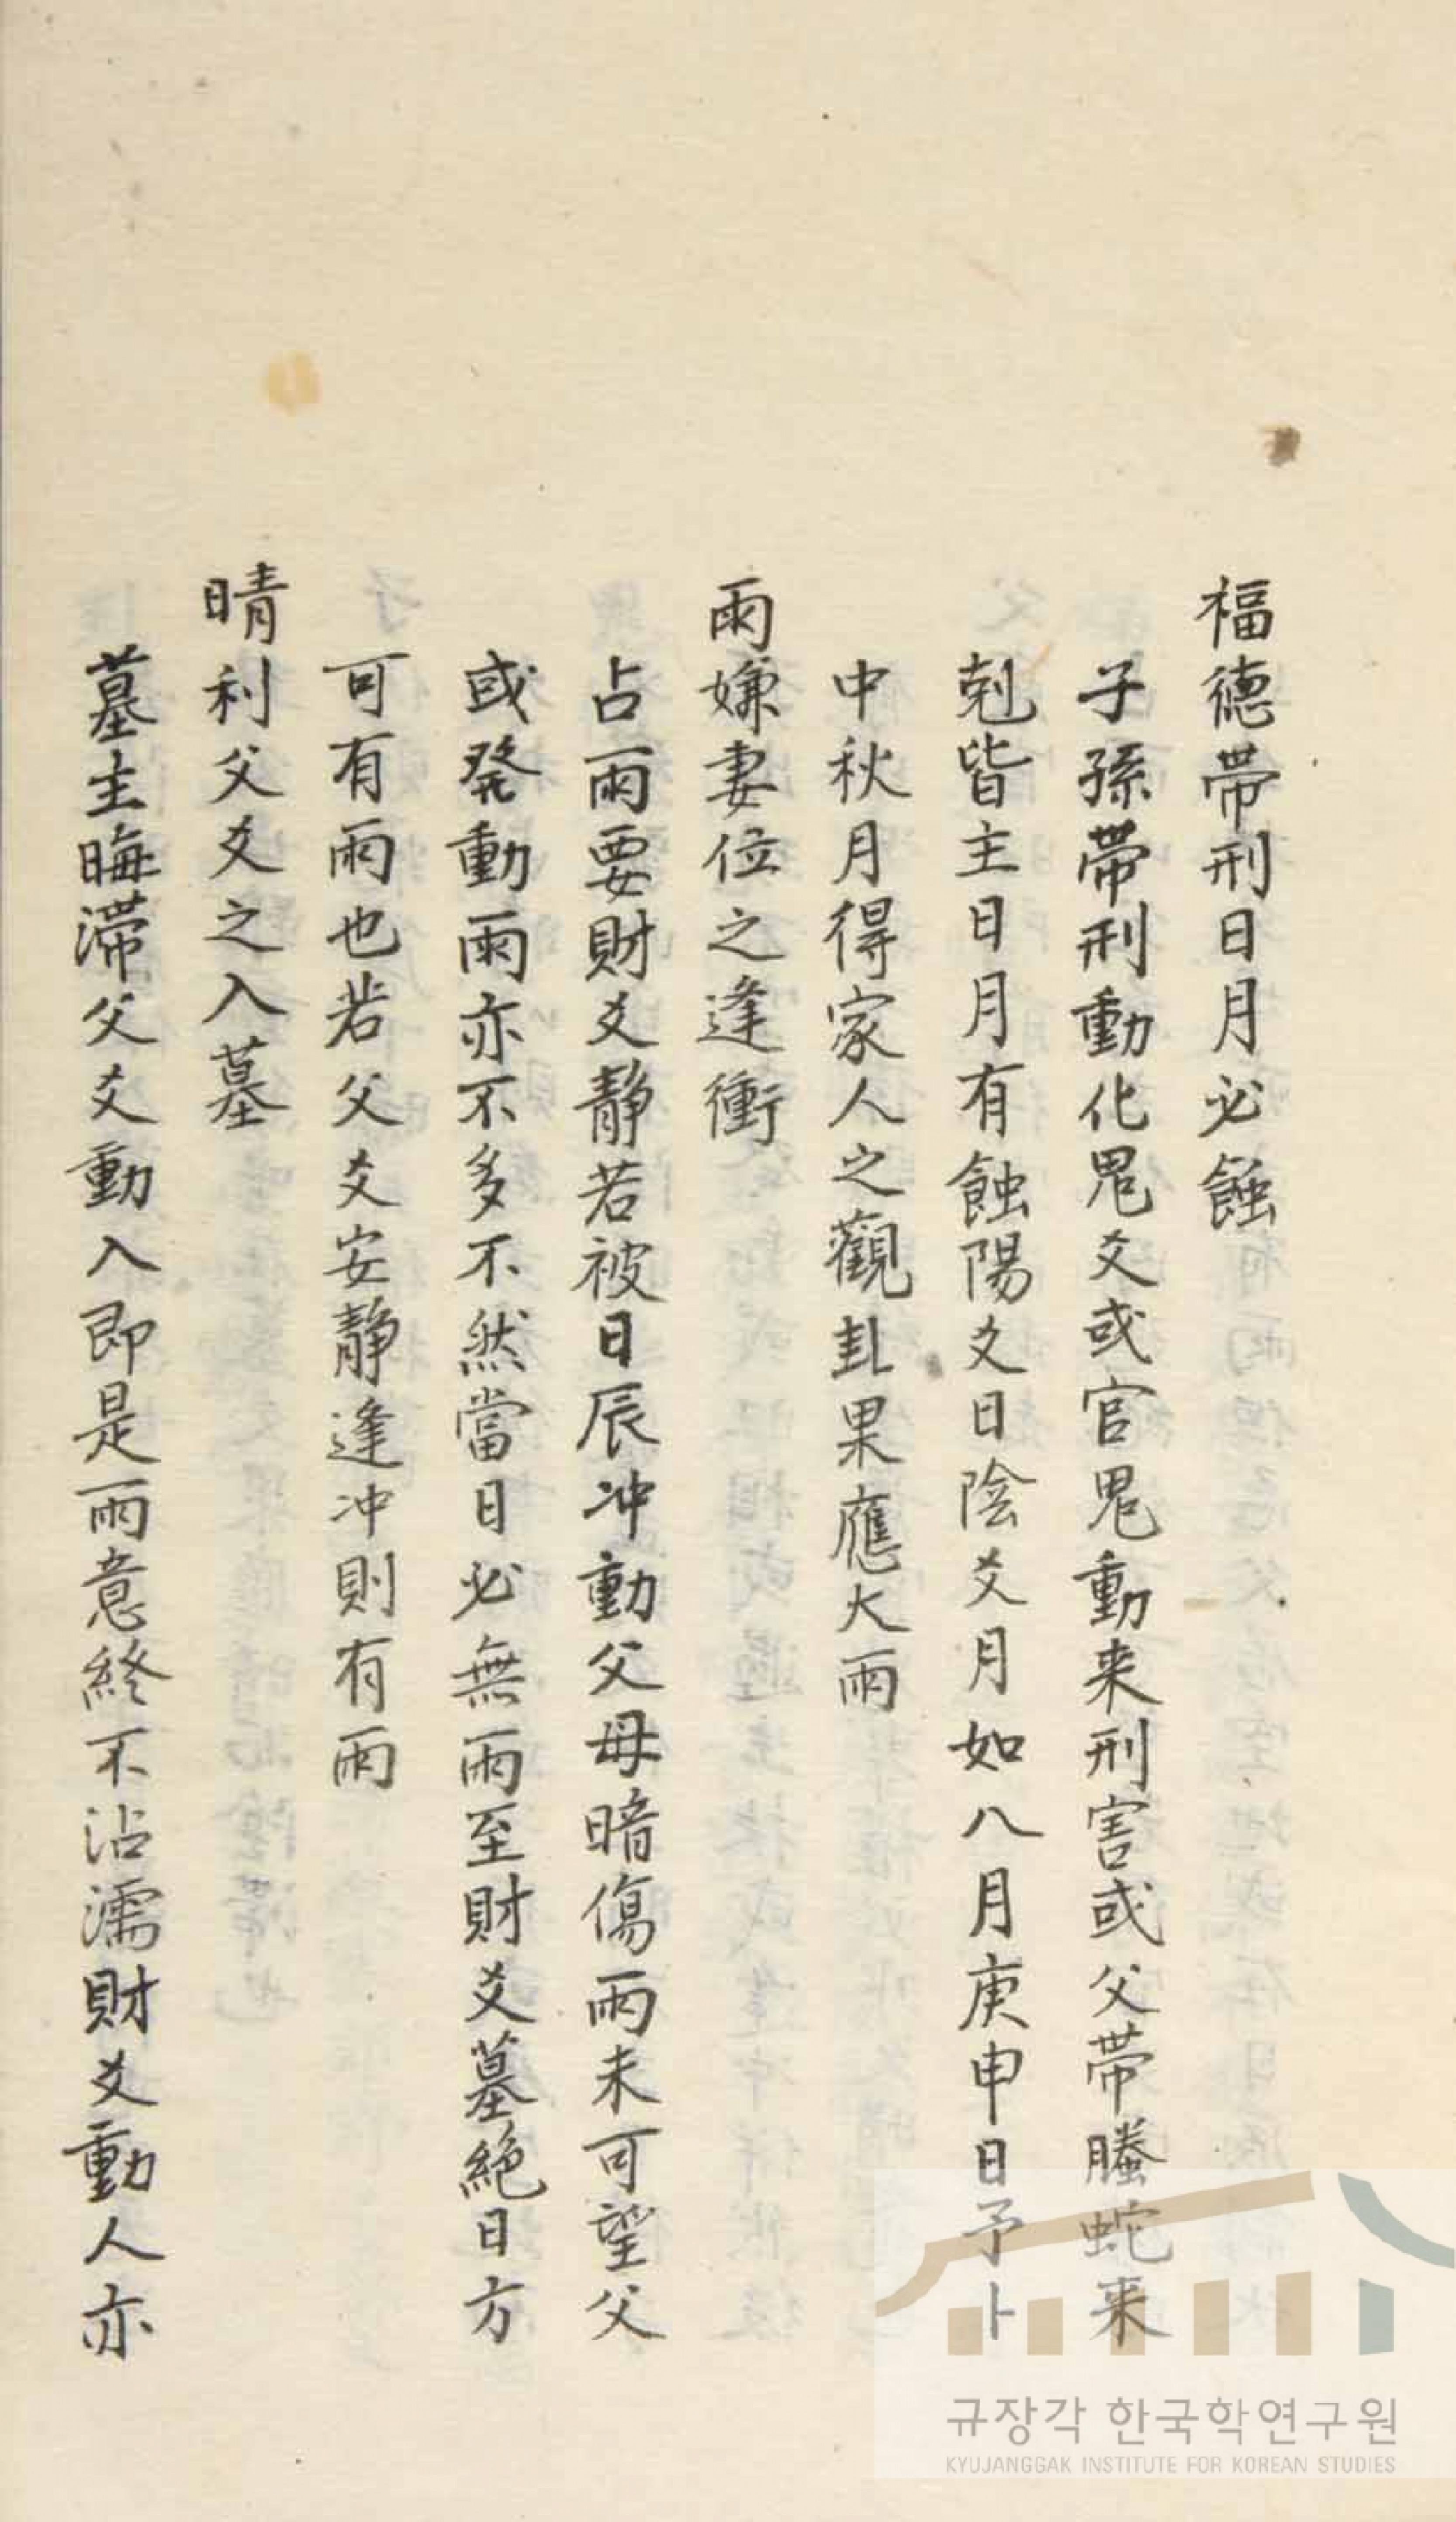 福德帶刑日月必蝕
子孫帶刑動化鬼爻或官鬼動来刑害或父帶螣蛇来
剋皆主日月有蝕陽爻日陰爻月如八月庚申日予卜
中秋月得家人之觀卦果應大雨
雨嫌妻位之逢衝
占雨要財爻靜若被日辰冲動父母暗傷雨未可望父
或發動雨亦不多不然當日必無雨至財爻墓絶日方
可有雨也若父爻安靜逢冲則有雨
晴利父爻之入墓
墓主晦滯父爻動入即是雨意終不沾濡財爻動人亦
규장각 한국학연구원
KYUJANGGAK INSTITUTE FOR KOREAN STUDIES